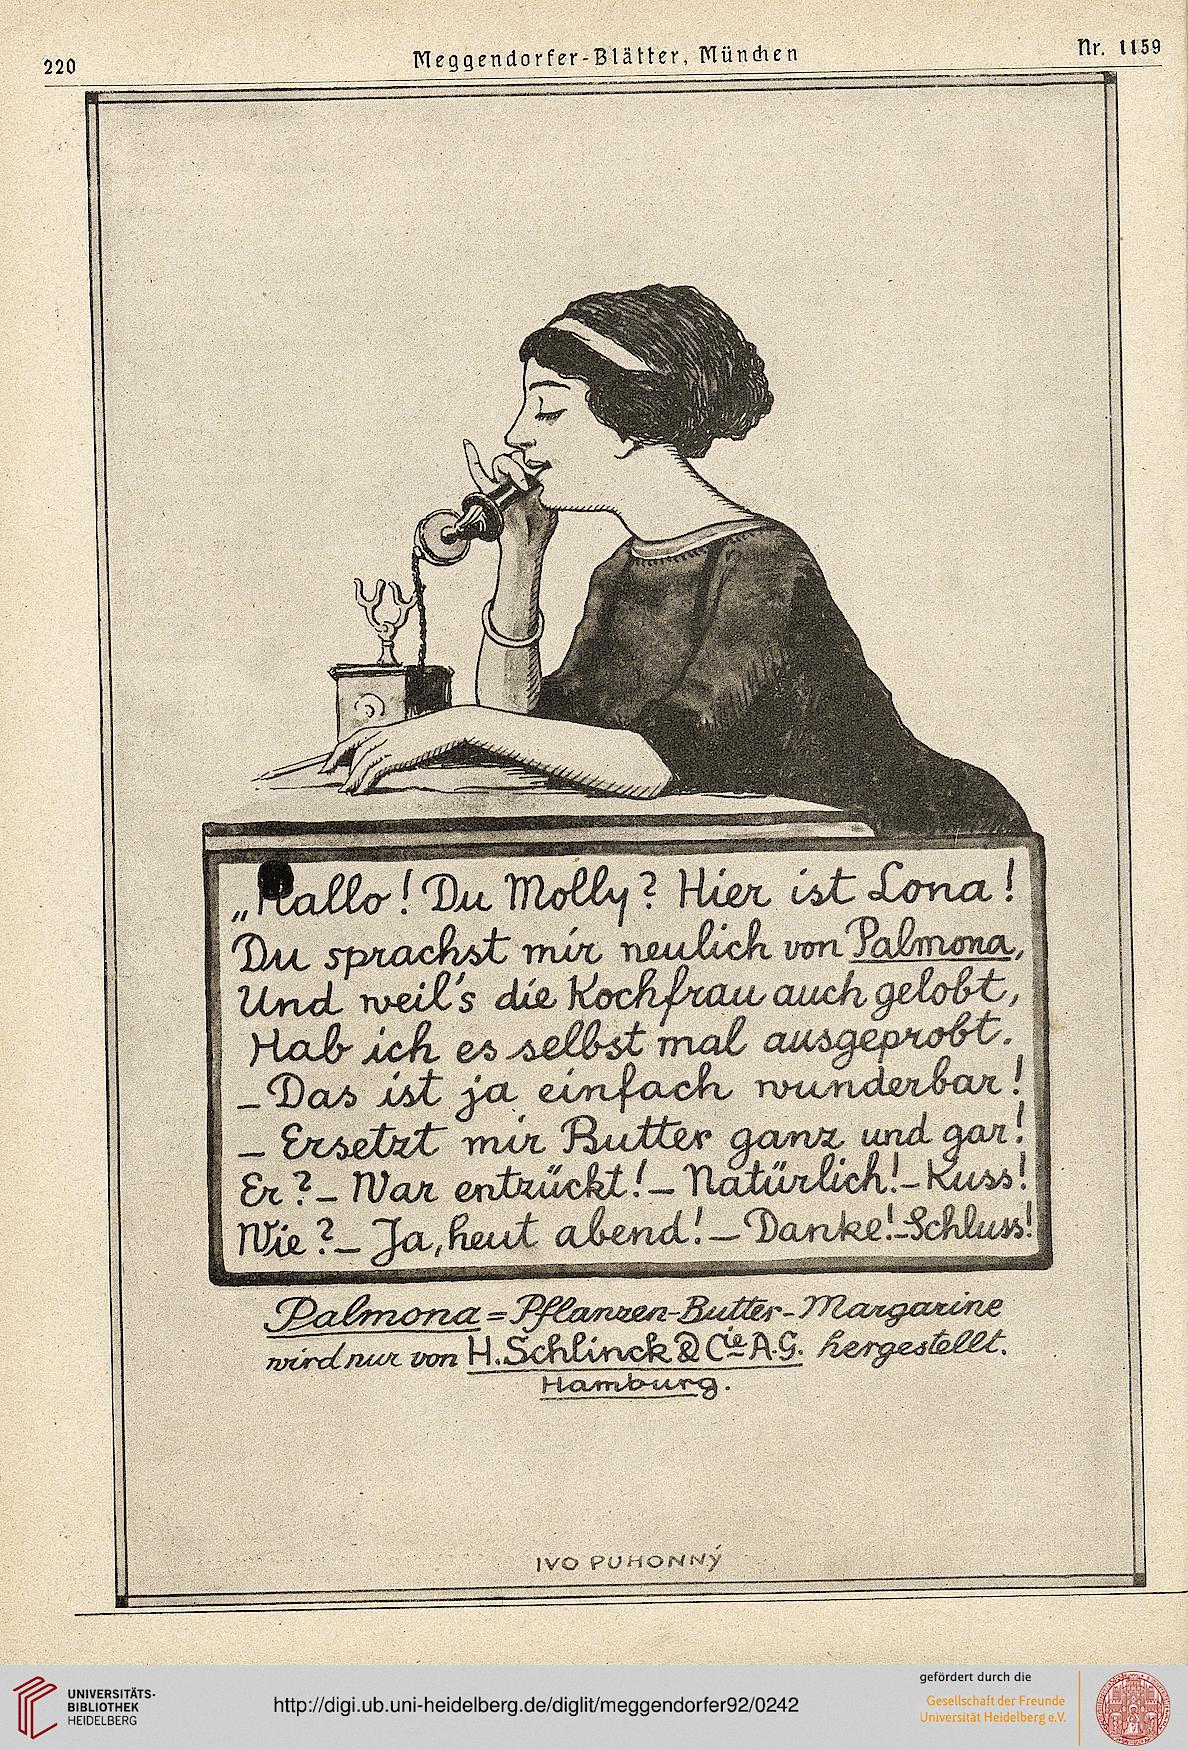 220
Meggendorfer-Blätter, München
Nr. 1159
„Hallo! Du Molly? Hier ist Lona!
Du sprachst mir neulich von Palmona,
Und weil's die Kochfrau auch gelobt,
Hab ich es selbst mal ausgeprobt.
– Das ist ja einfach wunderbar!
– Ersetzt mir Butter ganz und gar!
Er? – War entzückt! – Natürlich! – Kuss!
Wie? – Ja, heut abend! – Danke! – Schluss!
Palmona = Pflanzen-Butter-Margarine
wird nur von H. Schlinck & Cie A.G. hergestellt.
Hamburg.
IVO PUHONNÝ
UNIVERSITÄTS-
BIBLIOTHEK
HEIDELBERG
http://digi.ub.uni-heidelberg.de/diglit/meggendorfer92/0242
gefördert durch die
Gesellschaft der Freunde
Universität Heidelberg e.V.